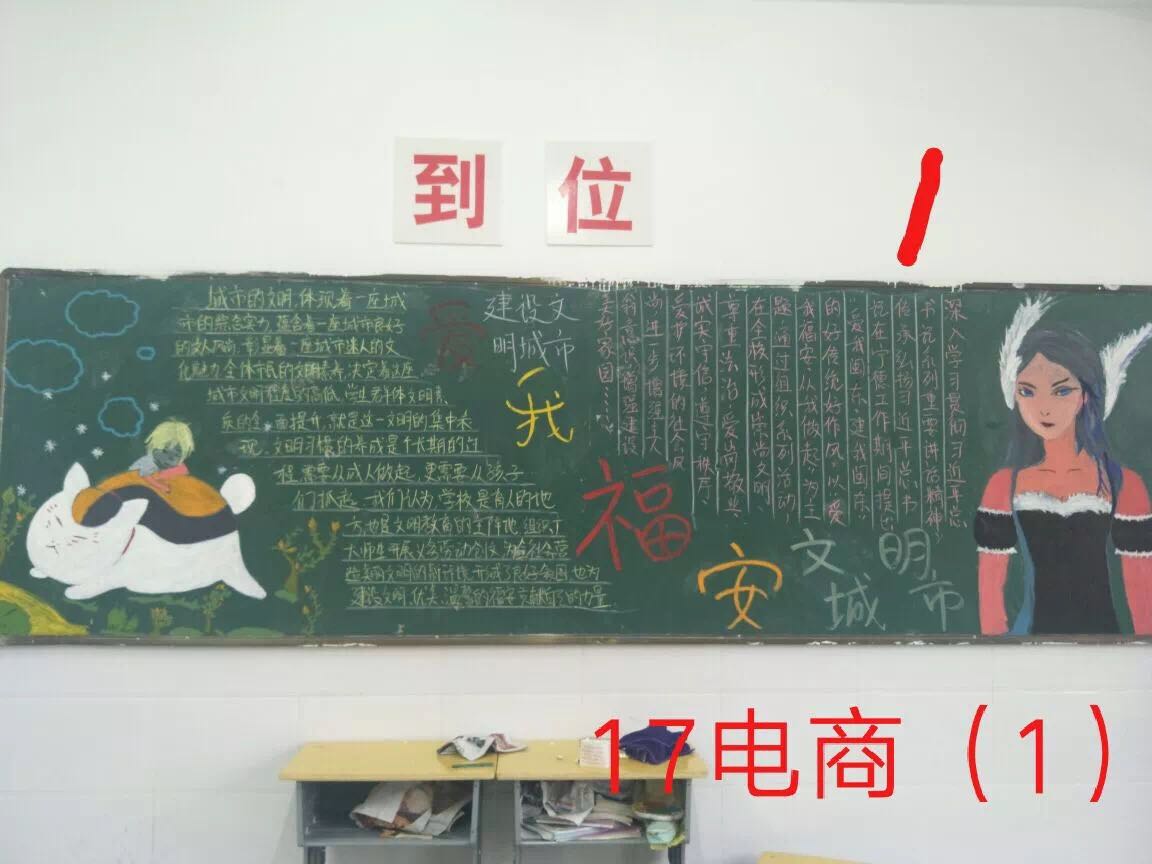 到 位
城市的文明,体现着一座城
市的综合实力,蕴含着一座城市良好
的 彰显着一座城市迷人的文
化魅力,全体市民的文明素养,决定着这座
城市文明程度的高低,学生群体文明素
质的全面提升,就是这一文明的集中表
现。文明习惯的养成是个长期的过
程,需要从成人做起,更需要从孩子
们抓起。我们认为,学校是育人的地
方,也是文明教育的主阵地,组织广
大师生开展
建设文明
爱
建设文
明城市
我
福
安
文明
城市
深入学习贯彻习近平总
书记系列重要讲话精神,
传承弘扬习近平总书
记在宁德工作期间提出
"爱我闽东、建我闽东"
的好传统好作风,以"爱
我福安、从我做起"为主
题,通过组织系列活动
在全校形成崇尚文明、
尊重法治、爱岗敬业、
诚实守信、遵守秩序、
爱护环境的社会风
尚,进一步
17电商（1）